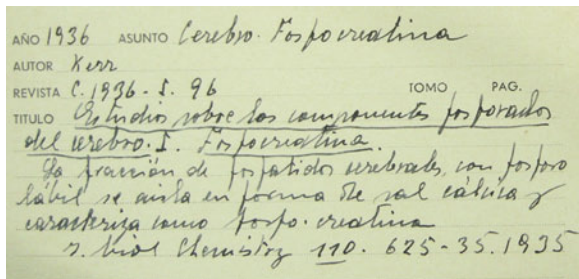 AÑO 1936 ASUNTO Cerebro. Fosfocreatina
AUTOR Kerr
REVISTA C. 1936 - I. 96 TOMO PAG.
TITULO Estudios sobre los componentes fosforados
del cerebro. I. Fosfocreatina.
La fracción de fosfatidos cerebrales, con fosforo
lábil se aisla en forma de sal cálcica y
caracteriza como fosfo-creatina
J. biol Chemistry 110. 625-35. 1935